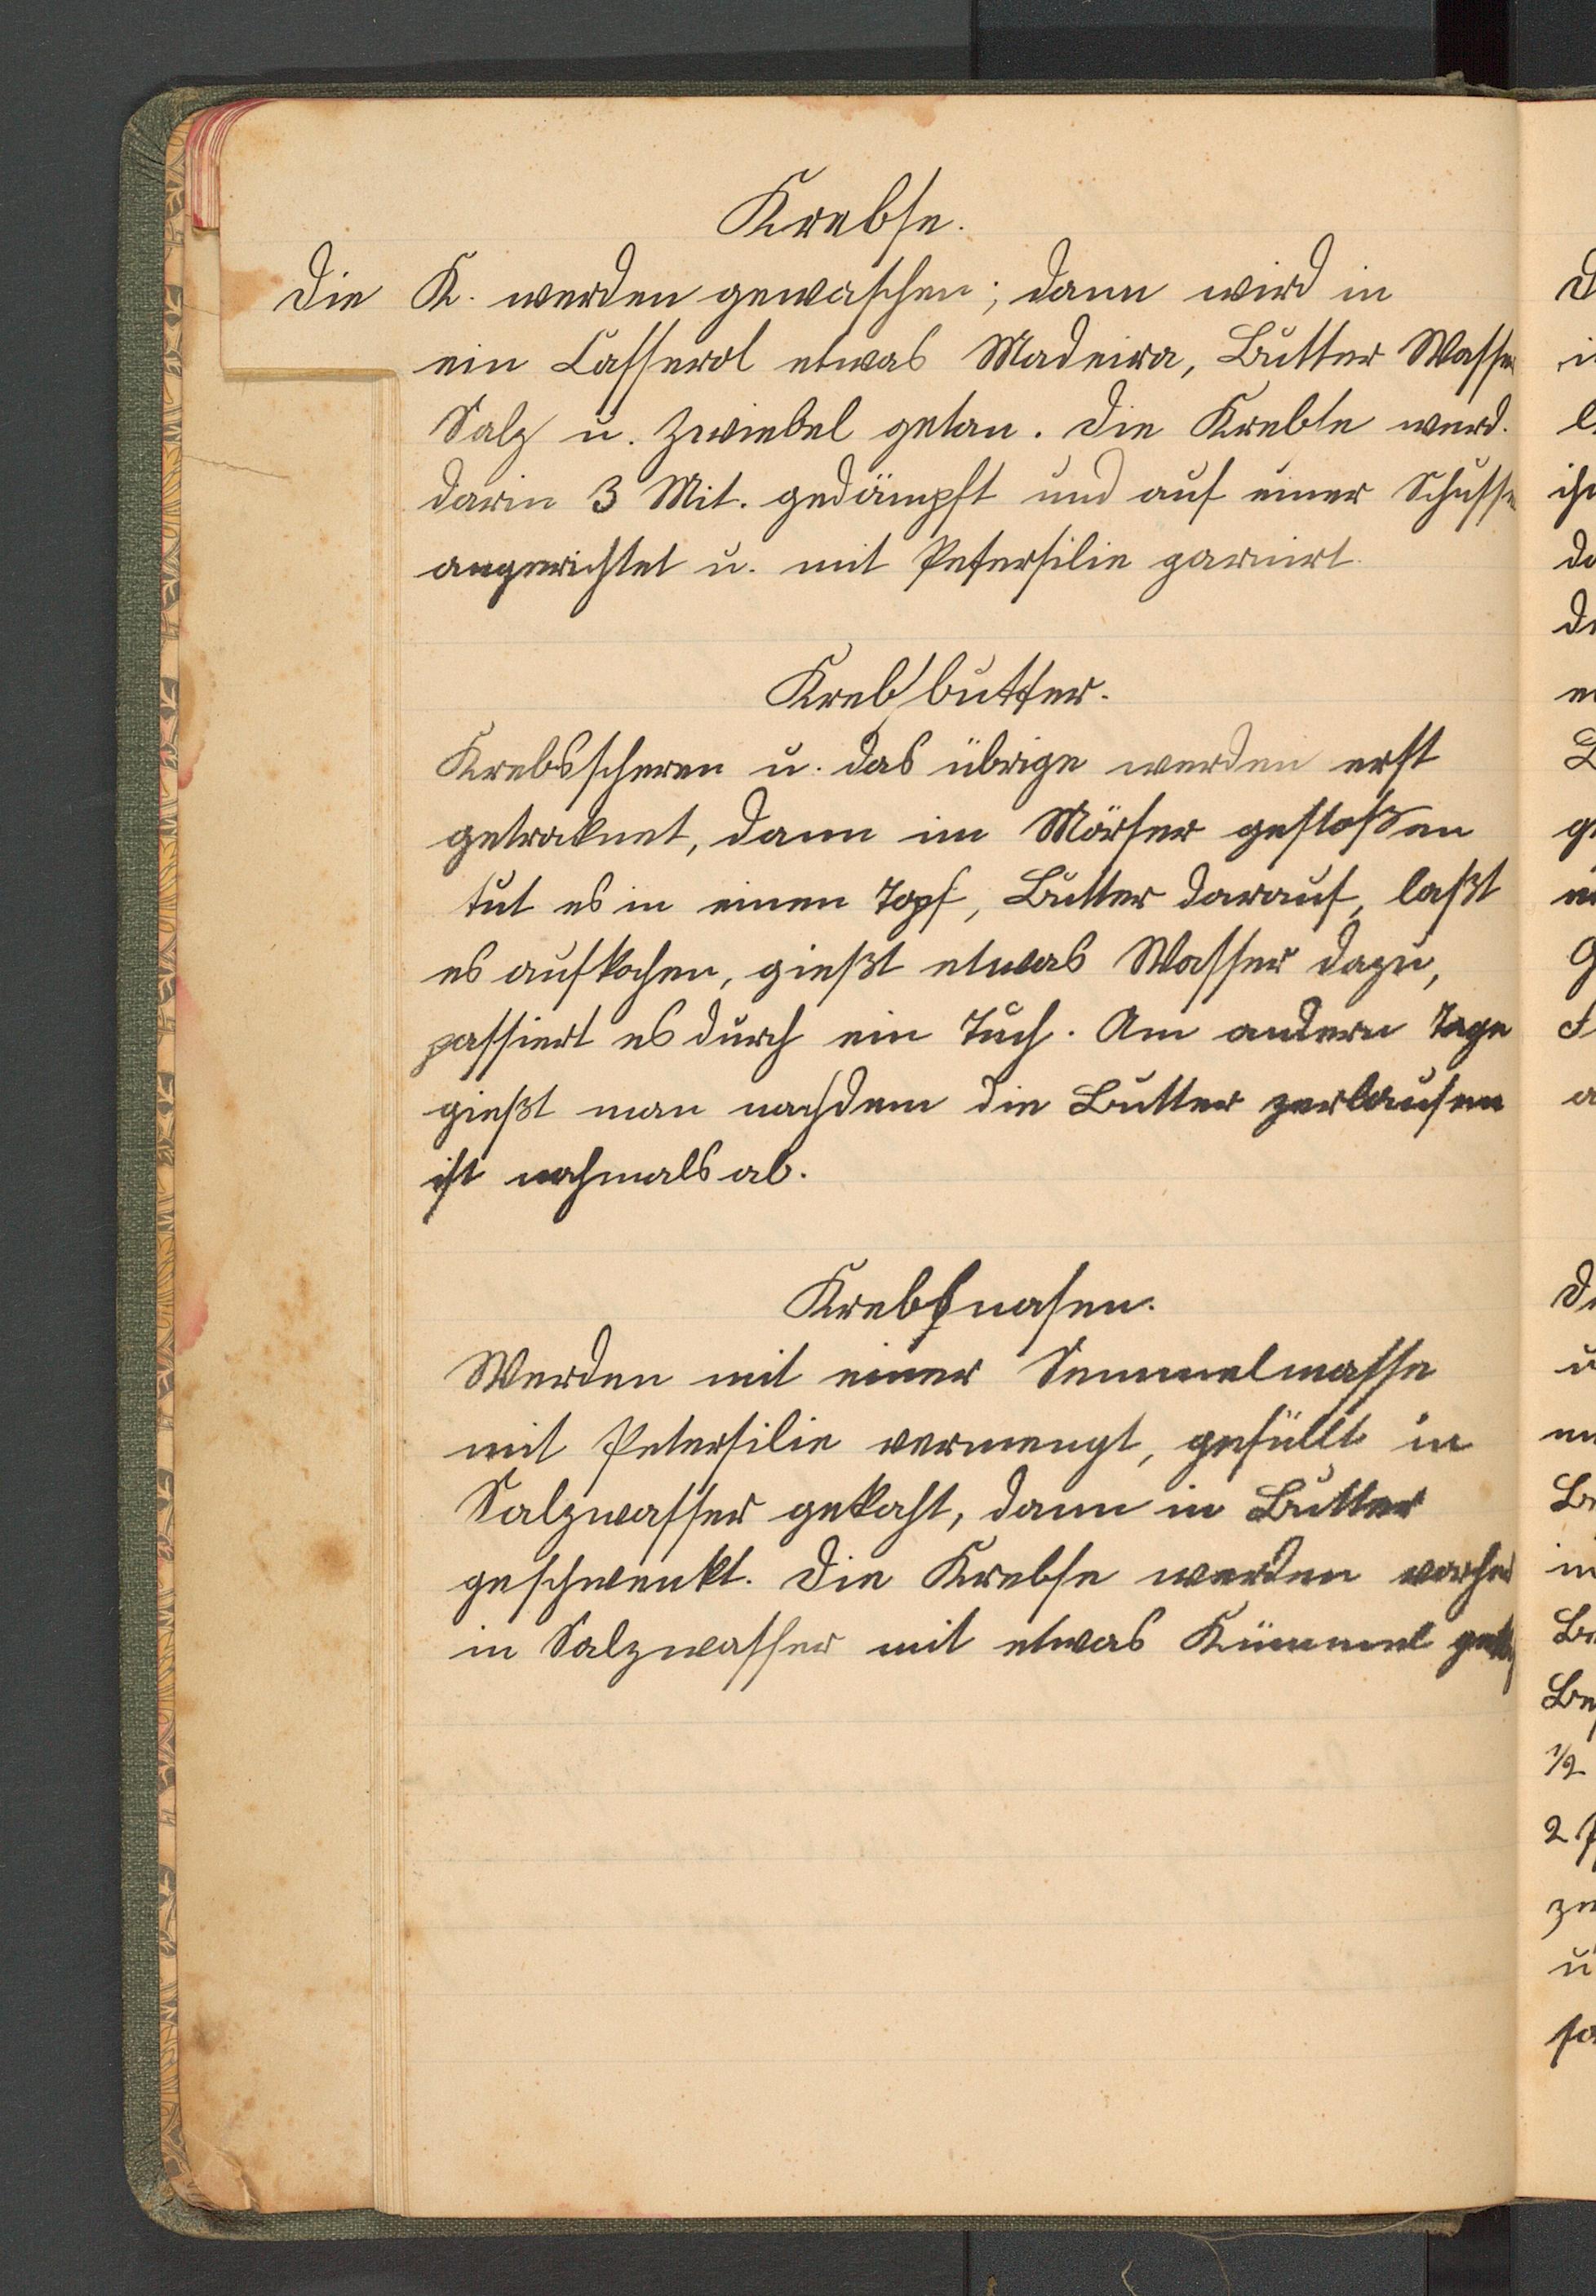 Krebse.
Die K. werden gewaschen; dann wird in
ein Casserol etwas Madeira, Butter Wasser
Salz u. Zwiebel getan. Die Krebse werd.
darin 3 Mit. gedämpft und auf einer Schüssel
angerichtet u. mit Petersilie garnirt.
Krebsbutter.
Krebsscheren u. das übrige werden erst
getroknet, dann im Mörser gestoßen
tut es in einen Topf, Butter darauf, laßt
es aufkochen, gießt etwas Wasser dazu,
passiert es durch ein Tuch. Am andern Tage
gießt man nachdem die Butter zerlaufen
ist nochmals ab.
Krebsnasen.
Werden mit einer Semmelmasse
mit Petersilie vermengt, gefüllt in
Salzwasser gekocht, dann in Butter
geschwenkt. Die Krebse werden vorher
in Salzwasser mit etwas Kümmel